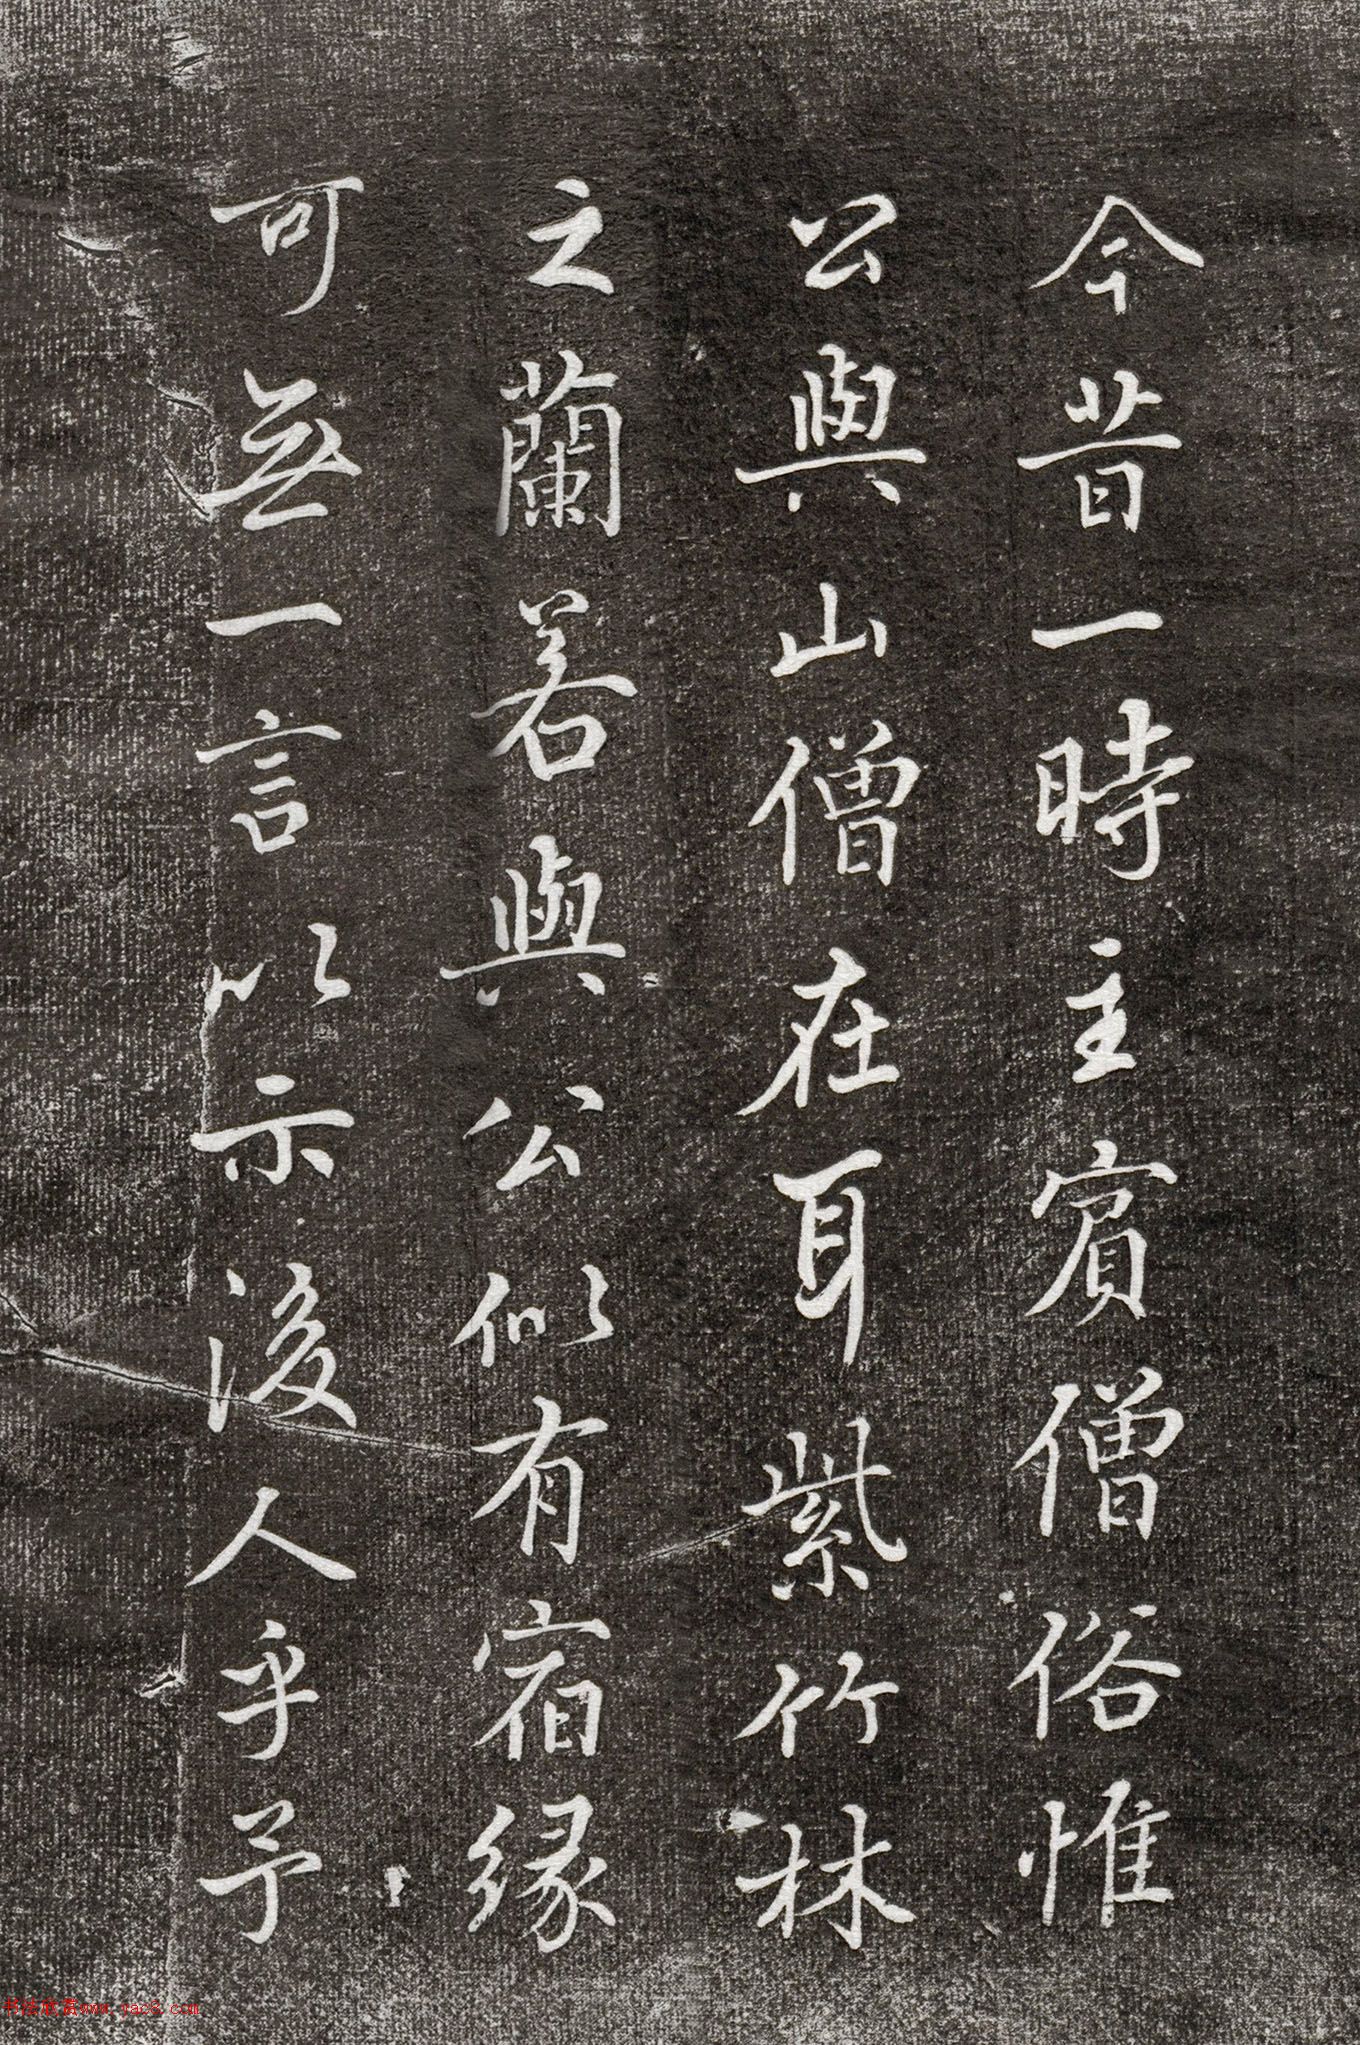 今昔一時主賓僧俗惟
公與山僧在耳紫竹林
之蘭若與公似有宿緣
可無一言以示後人乎予
书法欣赏www.yac8.com